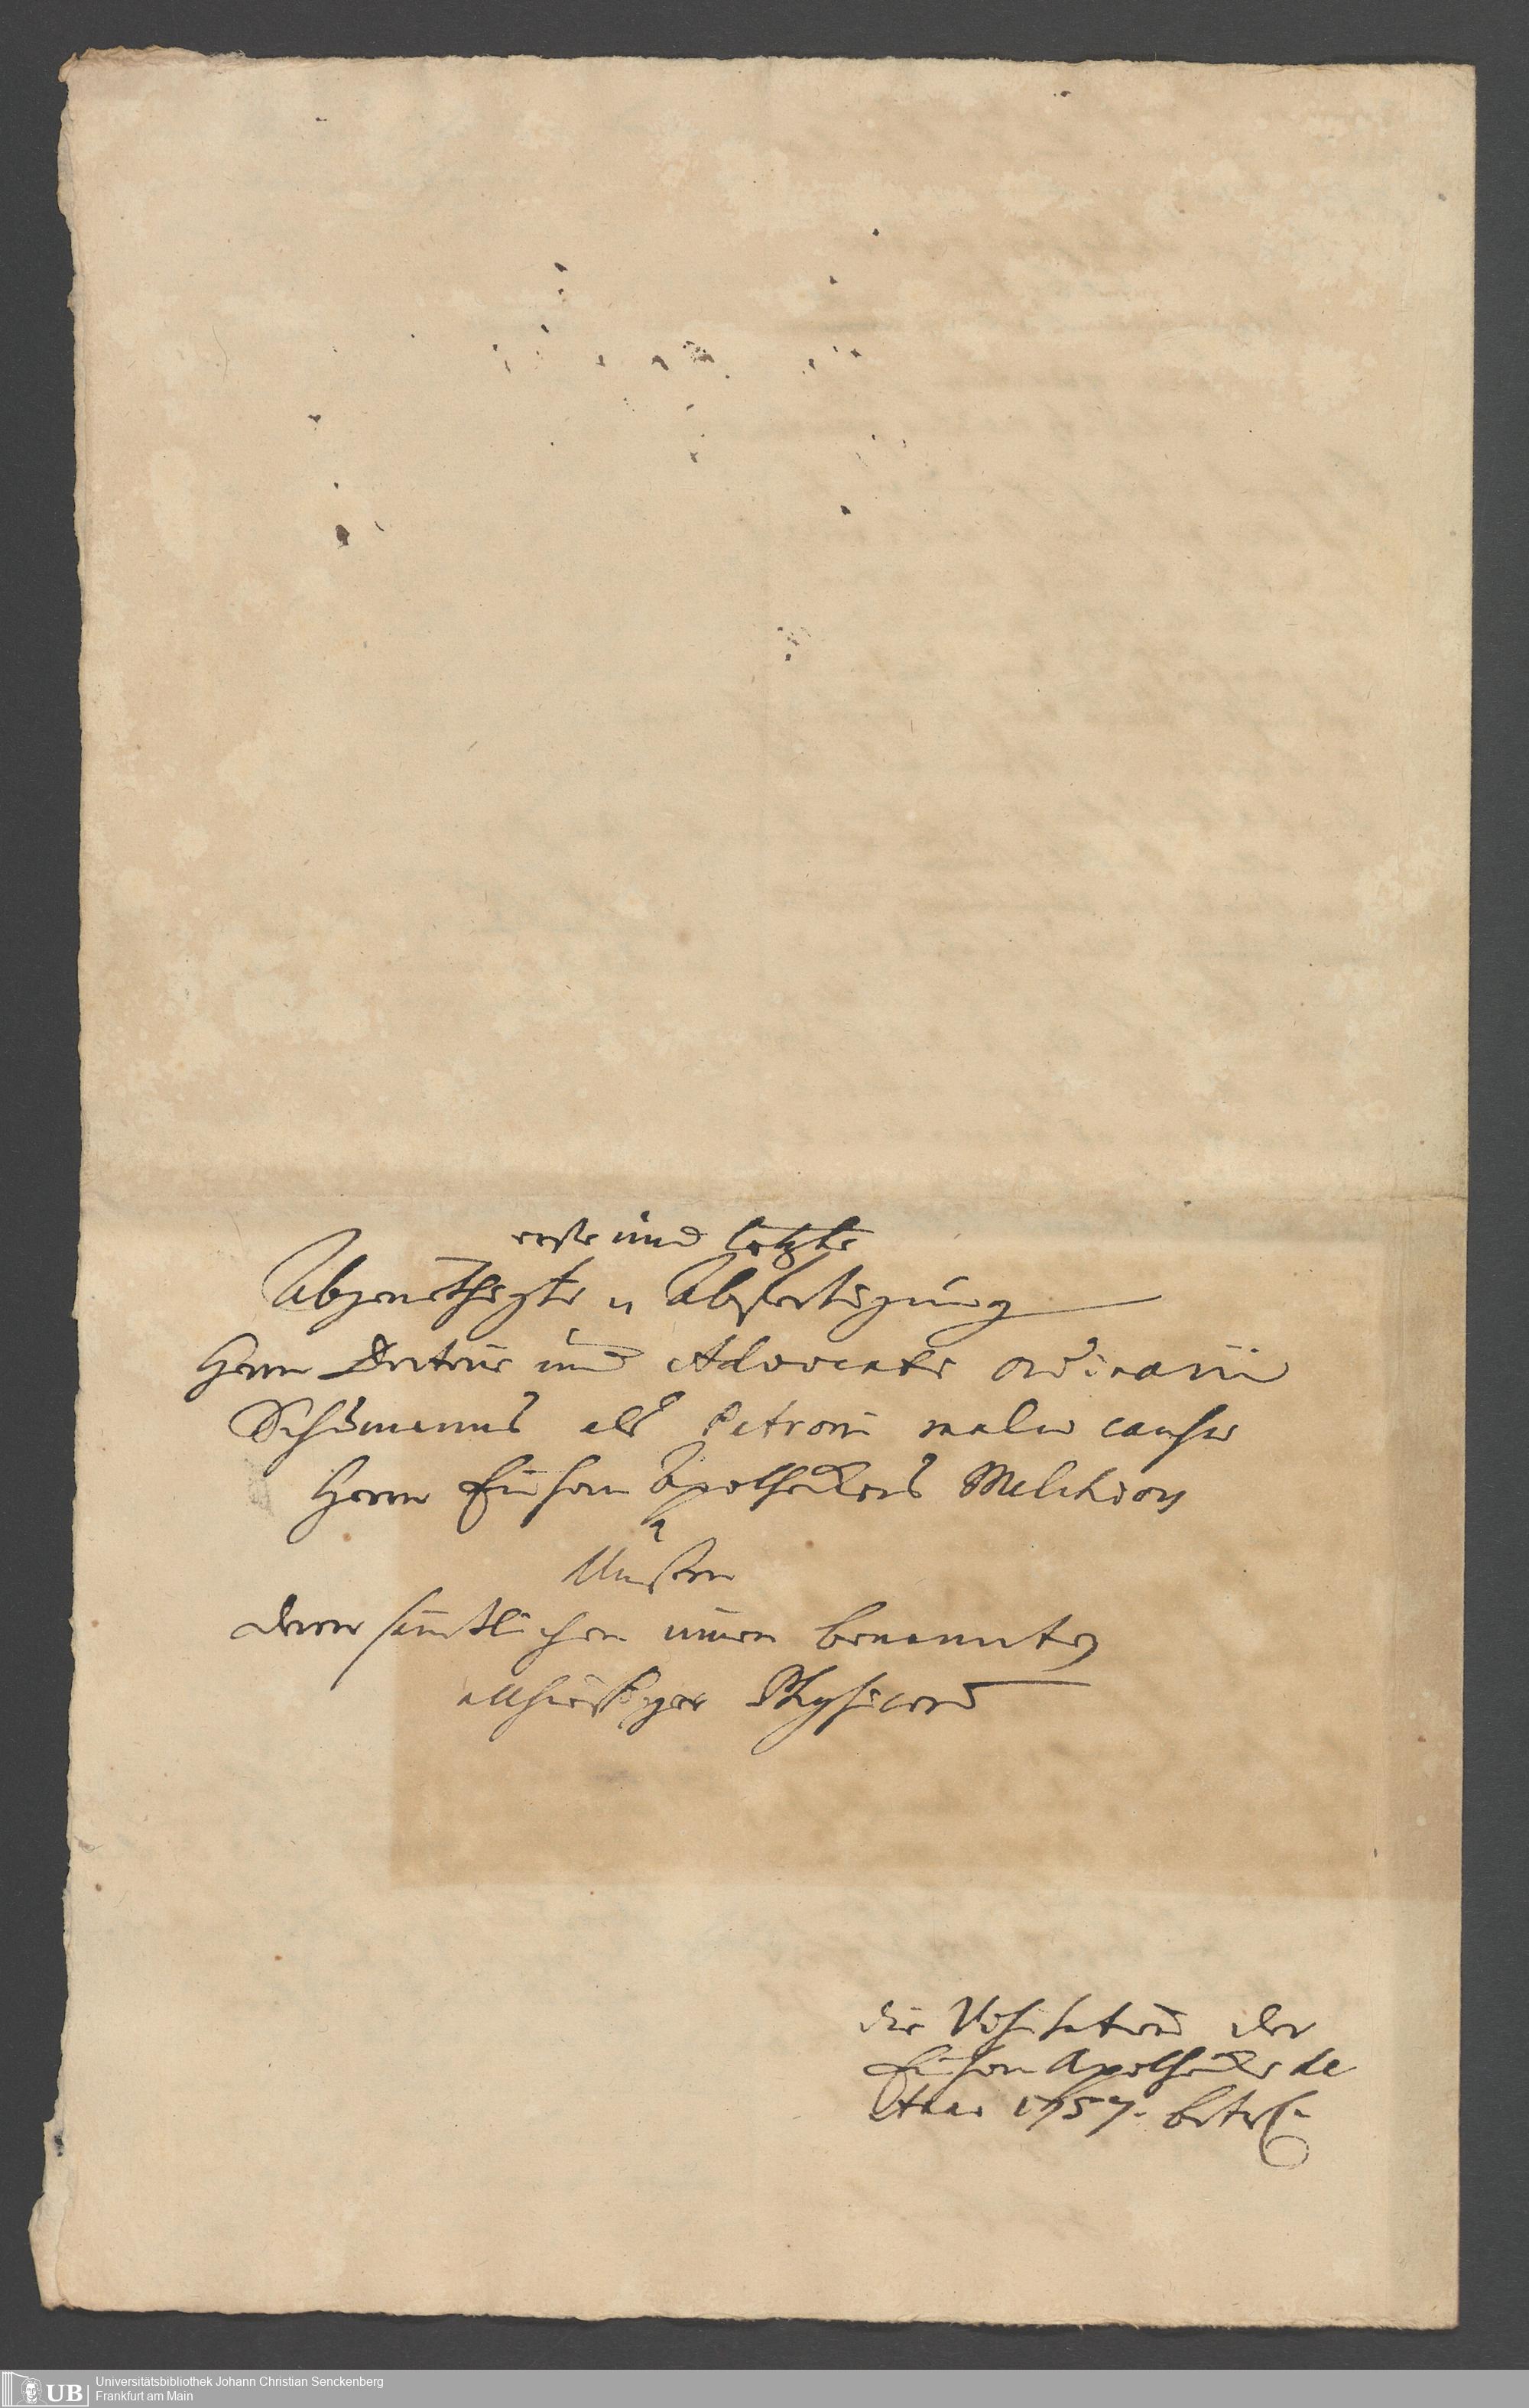 erste und letzte
Abgenöthigte u Abfertigung
Herrn Doctoris und Advocati ordinarii
als Patroni malae causae
Herrn Apotheckers Melchiors
derer sämtlichen innen benannten
allhiesigen Physicorum
die Visitation der
Apothecke de
Anno 1757. betref.
UB
Universitätsbibliothek Johann Christian Senckenberg
Frankfurt am Main